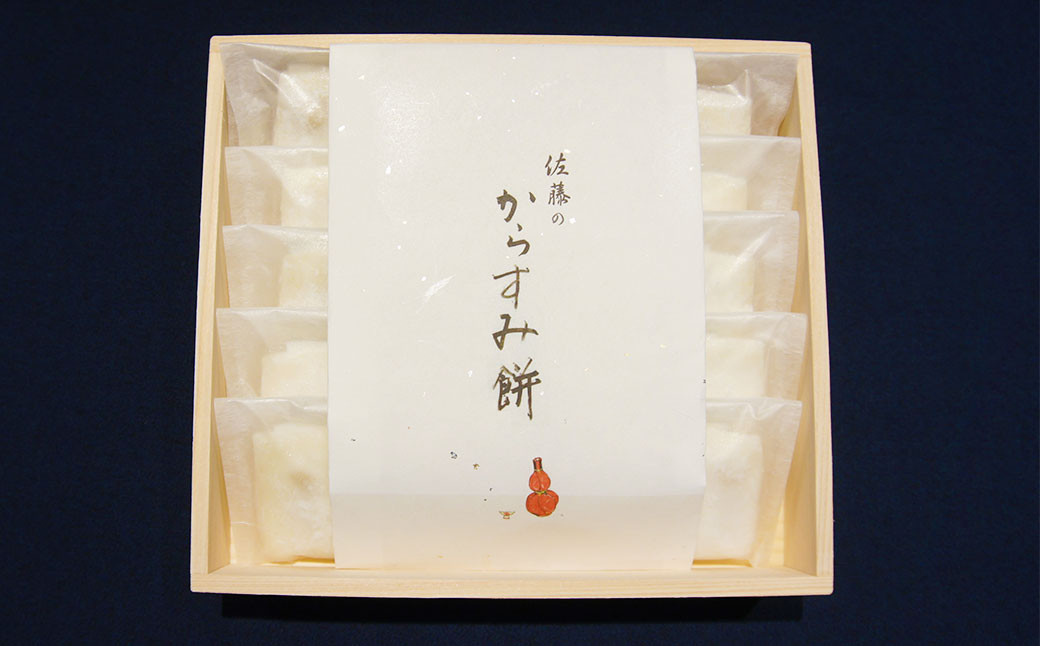 佐藤の
からすみ餅